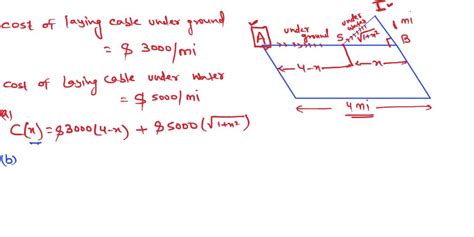 cost of laying cable under ground
= $ 3000/mi
cost of laying cable under water
= $ 5000/mi
(a)
C(x) = $3000(4-x) + $5000(√1+x²)
(b)
A
under
ground
S
under
water
√1+x²
I
1 mi
B
4-x
x
4 mi